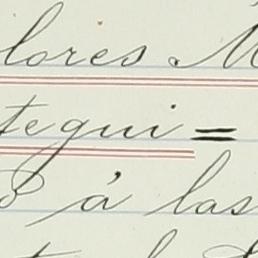 lores M
tegui =
á las